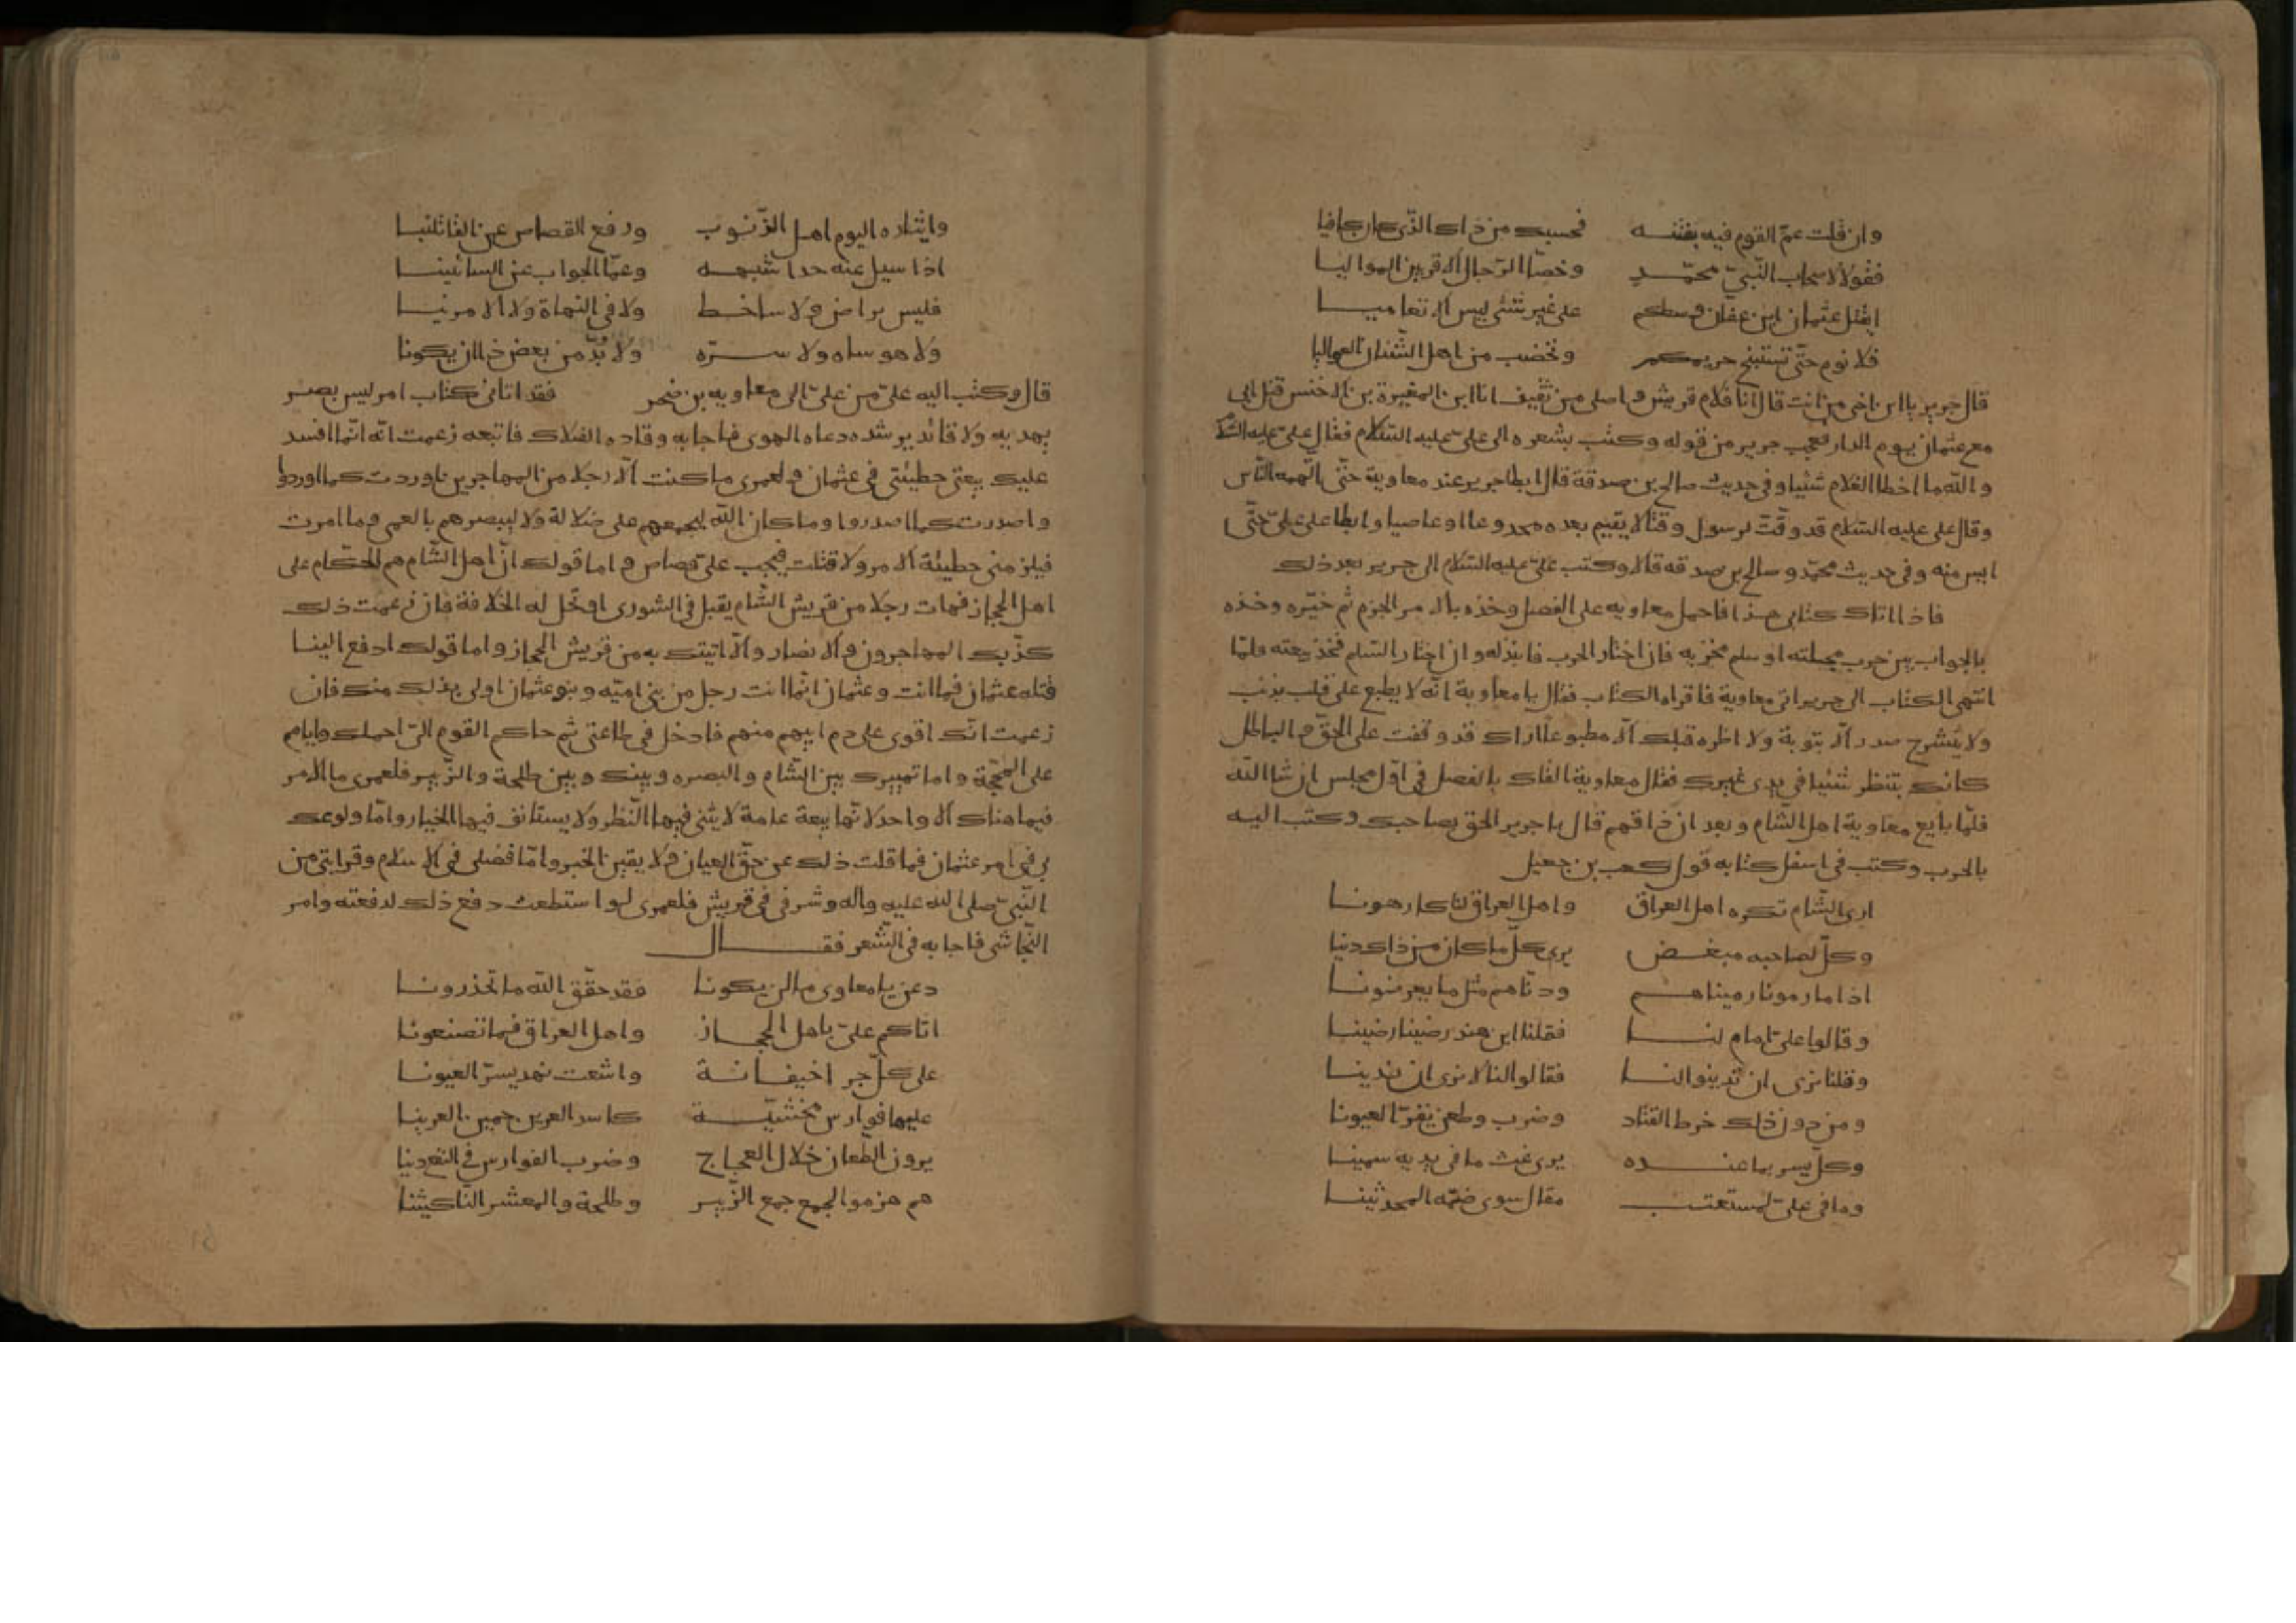 وان قلت عمّ القوم فيه بفتنه فحسبك من ذاك الذّى كان كافيا
فقولا لاصحاب النّبىّ محمّد وخصّا الرّجال الاقربين المواليا
ايقتل عثمان ابن عفان وسطكم على غير شئى ليس الا تعاميا
فلا نوم حتّى نستبيح حريمكم ونخضب من اهل الشّنان العواليا
قال جرير يا ابن اخى من انت قال انا غلام قريش واصلى من ثقيف انا ابن المغيرة بن الاخنس قتل ابى
مع عثمان يوم الدار فعجب جرير من قوله وكتب بشعره الى علىّ عليه السّلام فقال على عليه السّلام
والله ما اخطا الغلام شئيا وفى حديث صالح بن صدقة قال ابطا جرير عند معاوية حتّى اتّهمه النّاس
وقال على عليه السّلام قد وقّت لرسول وقتا لا يقيم بعده مخدوعا او عاصيا وابطا على علىّ حتّى
ايس منه وفى حديث محمّد وصالح بن صدقه قالا وكتب علىّ عليه السّلام الى جرير بعد ذلك
فاذا اتاك كتابى هذا فاحمل معاويه على الفصل وخذه بالامر الجزم ثم خيّره وخذه
بالجواب بين حرب مجلته او سلم مخزيه فان اختار الحرب فانبذ له وان اختار السّلم فخذ بيعته فلمّا
انتهى الكتاب الى جرير اتى معاوية فاقراه الكتاب فقال يا معاوية انّه لا يطبع على قلب بذنب
ولا يشرح صدر الّا بتوبة ولا اظره قلبك الّا مطبوعا اراك قد وقفت على الحقّ والباطل
كانك تنتظر شئيا فى يدى غيرك فقال معاوية القاك بالفصل فى اوّل مجلس ان شا الله
فلمّا بايع معاوية اهل الشّام وبعد ان ذاقهم قال يا جرير الحق بصاحبك وكتب اليه
بالحرب وكتب فى اسفل كتابه قول كعب بن جعيل
ارى الشّام تكره اهل العراق واهل العراق لنا كارهونا
وكلّ لصاحبه مبغض يرى كلّ ما كان من ذاك دينا
اذا ما رمونا رميناهم ودنّاهم مثل ما يعرضونا
وقالوا علىّ امام لنا فقلنا ابن هند رضينا رضينا
وقلنا نرى ان تدينوا لنا فقالوا لنا لا نرى ان ندينا
ومن دون ذلك خرط القتاد وضرب وطعن يقرّ العيونا
وكلّ يسر بما عنده يرى غث ما فى يديه سمينا
وما فى علىّ لمستعتب مقال سوى ضمّه المحدثينا
وايثاره اليوم اهل الذّنوب ورفع القصاص عن القاتلينا
اذا سيل عنه حدا شبهه وعمّا الجواب عن السائلينا
فليس براض ولا ساخط ولا فى النهاة ولا الامرنيا
ولا هو ساه ولا سرّه ولا بدّ من بعض ذا ان يكونا
قال وكتب اليه علىّ من علىّ الى معاويه بن صخر فقد اتانى كتاب امر ليس بصر
يهديه ولا قائد يرشده دعاه الهوى فاجابه وقاده الضلاك فاتبعه زعمت انّه انّما افسد
عليك بيعتى خطيئتى فى عثمان ولعمرى ما كنت الّا رجلا من المهاجرين اوردت كما اوردوا
واصدرت كما اصدروا وما كان الله ليجمعهم على ضلالة ولا ليبصرهم بالعمى وما امرت
فيلزمنى خطيئة الامر ولا قتلت فيجب علىّ قصاص واما قولك انّ اهل الشّام هم الحكّام على
اهل الحجاز فهات رجلا من قريش الشّام يقبل فى الشورى او تحل له الخلافة فان زعمت ذلك
كذّبك المهاجرون والانصار والّا اتيتك به من قريش الحجاز واما قولك ادفع الينا
قتله عثمان فما انت وعثمان انّما انت رجل من بنى اميّه وبنو عثمان اولى بذلك منك فان
زعمت انّك اقوى على دم ابيهم منهم فادخل فى طاعتى ثم حاكم القوم الىّ احملك واياهم
على المحجّة واما تمييزك بين الشّام والبصره وبينك وبين طلحة والزّبير فلعمرى ما الامر
فيما هناك الا واحد لانّها بيعة عامة لا يثنى فيها النّظر ولا يستانف فيها الخيار وامّا ولوعك
بى فى امر عثمان فما قلت ذلك عن حقّ العيان ولا يقين الخبر وامّا فضلى فى الاسلام وقرابتى من
النّبىّ صلى الله عليه واله وشرفى فى قريش فلعمرى لو استطعت دفع ذلك لدفعته وامر
النّجاشى فاجابه فى الشّعر فقال
دعن يا معاوى ما لن يكونا فقد حقّق الله ما تحذرونا
اتاكم علىّ باهل الحجاز واهل العراق فما تصنعونا
على كلّ جردا خيفانة واشعث نهد يسرّ العيونا
عليها فوارس مخشيّة كاسد العرين حمين العرينا
يرون الطّعان خلال العجاج وضرب الفوارس فى النقع دينا
هم هزموا الجمع جمع الزّبير وطلحة والمعشر النّاكثينا
61